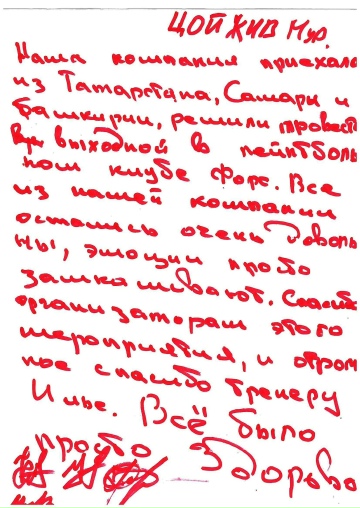 ЦОЙ ЖИВ
Наша компания приехала
из Татарстана, Самары и
Башкирии, решили провест
выходной в пейнтболь
ном клубе Форс. Все
из нашей компании
остались очень доволь
ны, эмоции просто
зашкаливают. Спасибо
организаторам этого
мероприятия, и огром
ное спасибо тренеру
Илье. Всё было
просто Здорово